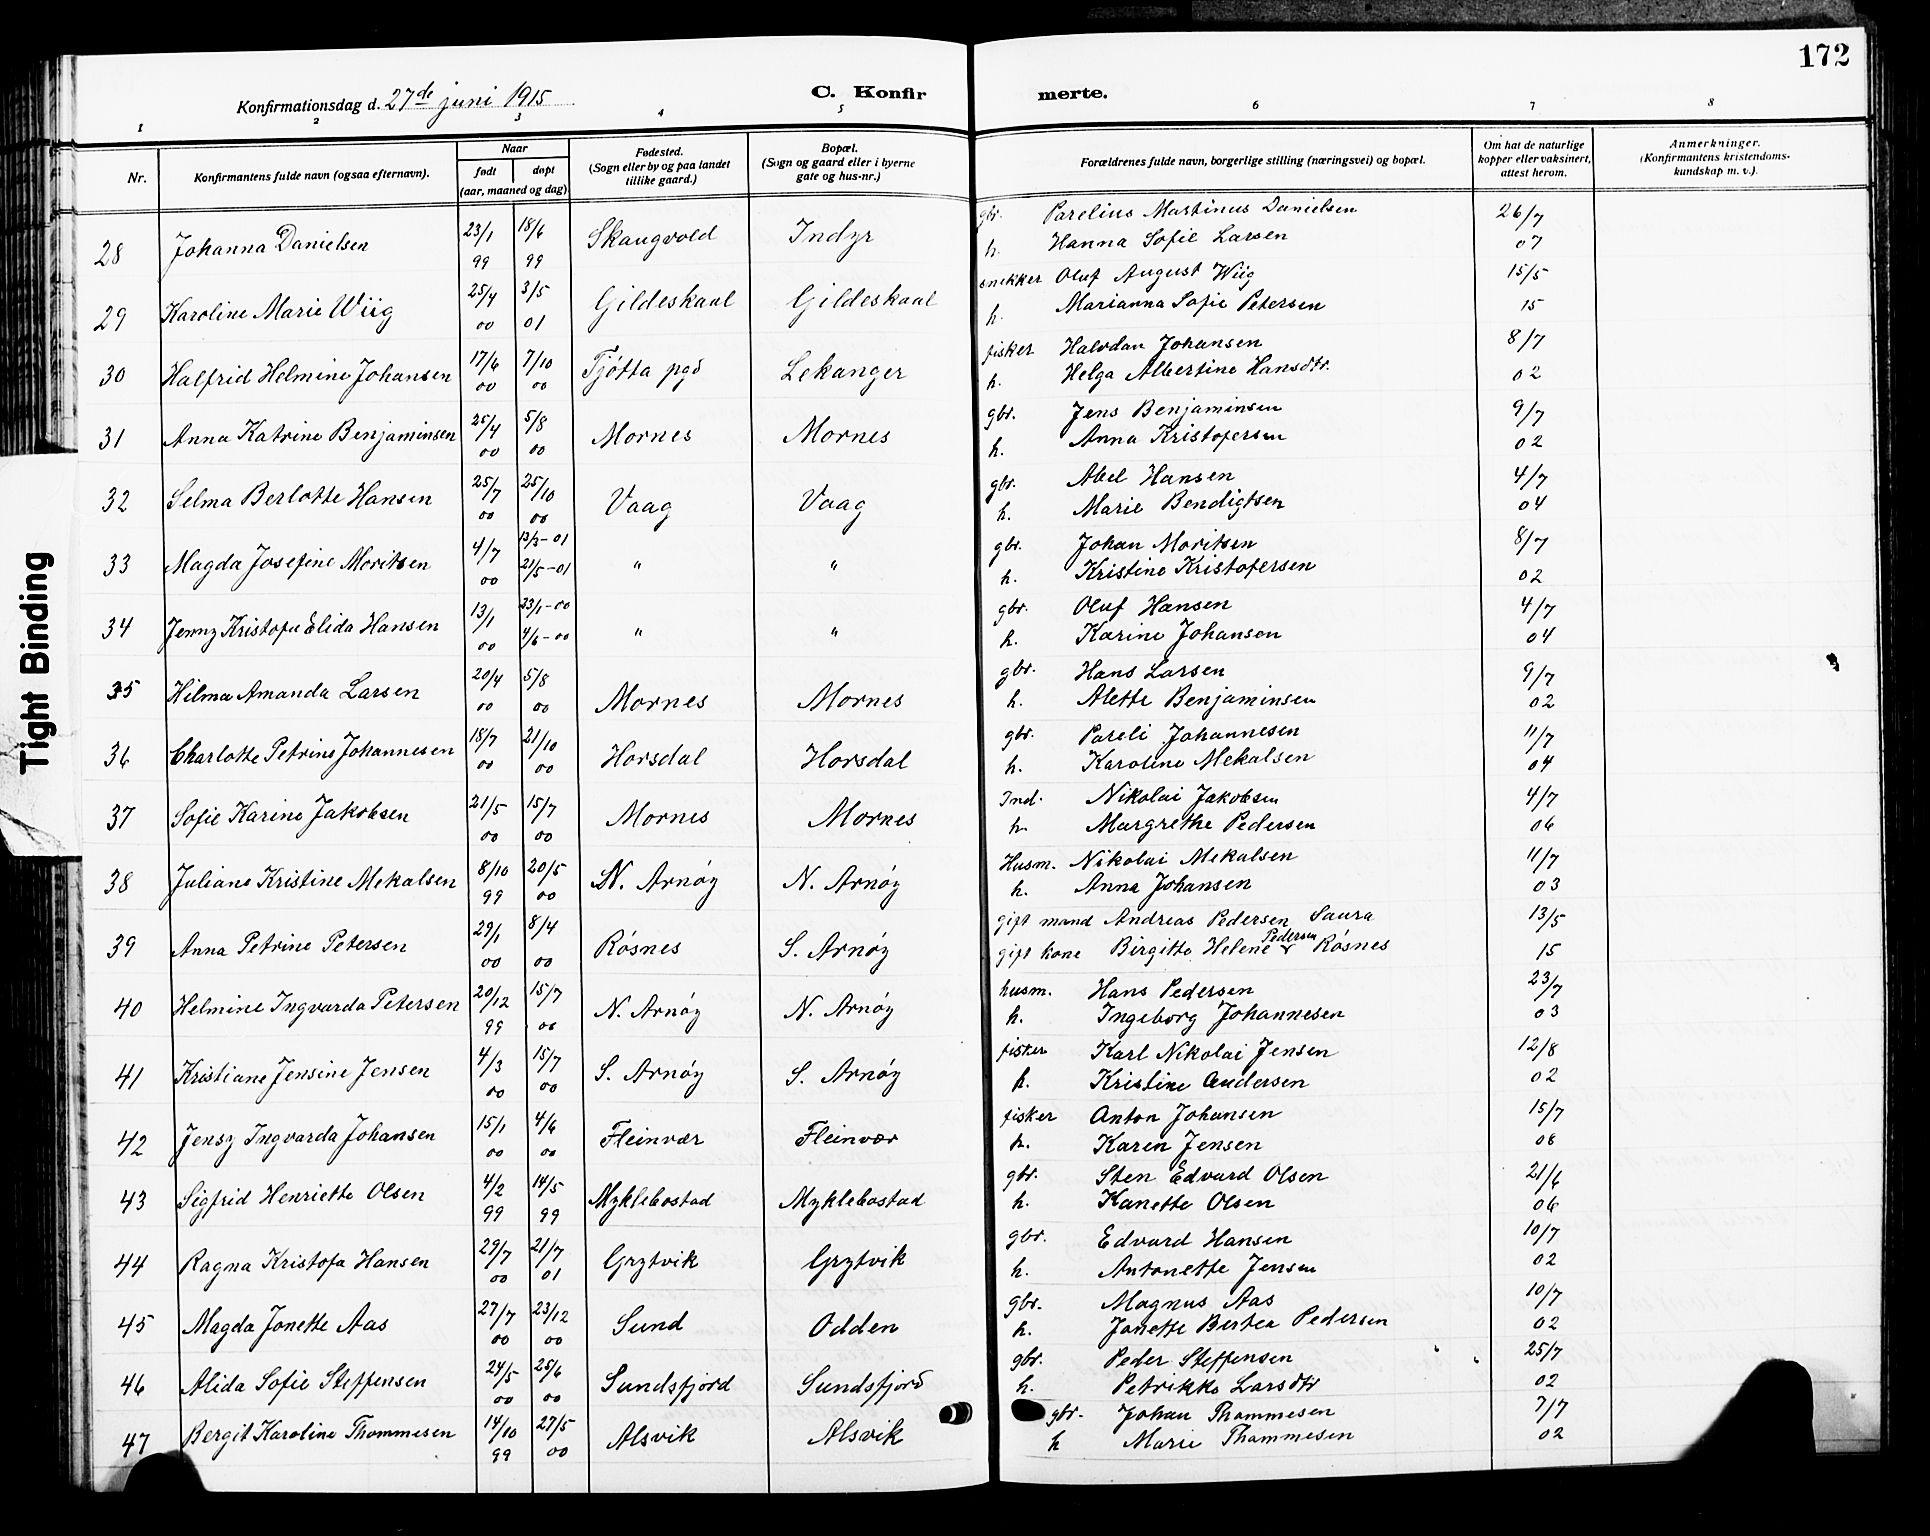 172
Konfirmationsdag d. 27de juni 1915
C. Konfirmerte.
1 2 3 4 5 6 7 8
Nr.
Konfirmantens fulde navn (ogsaa efternavn).
Naar
født døpt
(aar, maaned og dag)
Fødested.
(Sogn eller by og paa landet
tillike gaard.)
Bopæl.
(Sogn og gaard eller i byerne
gate og hus-nr.)
Forældrenes fulde navn, borgerlige stilling (næringsvei) og bopæl.
Om hat de naturlige
kopper eller vaksinert,
attest herom.
Anmerkninger.
(Konfirmantens kristendoms-
kundskap m. v.).
28 Johanna Danielsen 23/1 99 18/6 99 Skaugvold Indyr
gbr. Parelius Martinus Danielsen 26/7
h. Hanna Sofie Larsen 07
29 Karoline Marie Wiig 25/4 00 3/5 01 Gildeskaal Gildeskaal
snekker Oluf August Wiig 15/5
h. Marianna Sofie Petersen 15
30 Halfrid Helmine Johansen 17/6 00 7/10 00 Tjøtta pgd Lekanger
fisker Halvdan Johansen 8/7
h. Helga Albertine Hansdtr. 02
31 Anna Katrine Benjaminsen 25/4 00 5/8 00 Mornes Mornes
gbr. Jens Benjaminsen 9/7
h. Anna Kristofersen 02
32 Selma Berlotte Hansen 25/7 00 25/10 00 Vaag Vaag
gbr. Abel Hansen 4/7
h. Marie Bendigtsen 04
33 Magda Josefine Moritsen 4/7 00 13/3-01 21/5-01 " "
gbr. Johan Moritsen 8/7
h. Kristine Kristofersen 02
34 Jenny Kristofa Elida Hansen 13/1 00 23/1-00 4/6-00 " "
gbr. Oluf Hansen 4/7
h. Karine Johansen 04
35 Hilma Amanda Larsen 20/4 00 5/8 00 Mornes Mornes
gbr. Hans Larsen 9/7
h. Alette Benjaminsen 02
36 Charlotte Petrine Johannesen 18/7 00 21/10 00 Horsdal Horsdal
gbr. Pareli Johannesen 11/7
h. Karoline Mekalsen 04
37 Sofie Karine Jakobsen 21/5 00 15/7 00 Mornes Mornes
Ind. Nikolai Jakobsen 4/7
h. Margrethe Pedersen 06
38 Juliane Kristine Mekalsen 8/10 99 20/5 00 N. Arnøy N. Arnøy
Husm. Nikolai Mekalsen 11/7
h. Anna Johansen 03
39 Anna Petrine Petersen 29/1 00 8/4 00 Røsnes S. Arnøy
gift mand Andreas Pedersen Saura 13/5
gift kone Birgitte Helene Pedersen Røsnes 15
40 Helmine Ingvarda Petersen 20/12 99 15/7 00 N. Arnøy N. Arnøy
husm. Hans Pedersen 23/7
h. Ingeborg Johannesen 03
41 Kristiane Jensine Jensen 4/3 00 15/7 00 S. Arnøy S. Arnøy
fisker Karl Nikolai Jensen 12/8
h. Kristine Andersen 02
42 Jensy Ingvarda Johansen 15/1 00 4/6 00 Fleinvær Fleinvær
fisker Anton Johansen 15/7
h. Karen Jensen 08
43 Sigfrid Henriette Olsen 4/2 99 14/5 99 Myklebostad Myklebostad
gbr. Sten Edvard Olsen 21/6
h. Kanette Olsen 06
44 Ragna Kristofa Hansen 29/7 00 21/7 01 Grytvik Grytvik
gbr. Edvard Hansen 10/7
h. Antonette Jensen 02
45 Magda Jonette Aas 27/7 00 23/12 00 Sund Odden
gbr. Magnus Aas 10/7
h. Jonette Bertea Pedersen 02
46 Alida Sofie Steffensen 24/5 00 25/6 00 Sundsfjord Sundsfjord
gbr. Peder Steffensen 25/7
h. Petrikke Larsdtr 02
47 Bergit Karoline Thommesen 14/10 99 27/5 00 Alsvik Alsvik
gbr. Johan Thommesen 7/7
h Marie Thommesen 02
Tight Binding